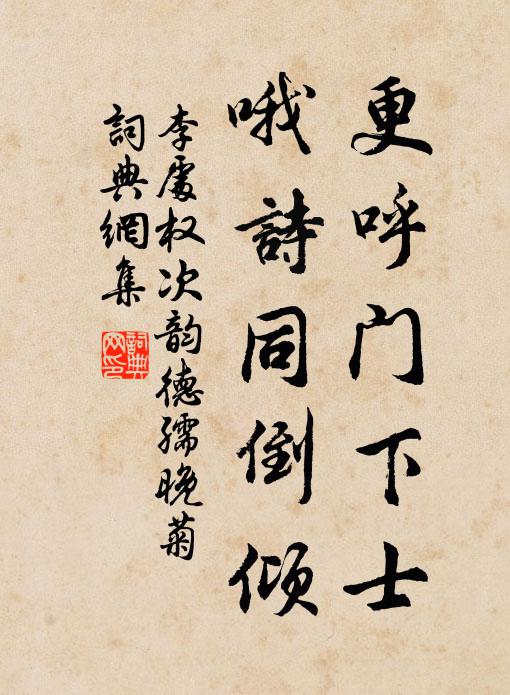 更呼门下士
哦詩同倒傾
李處权次韵德孺晚菊
詞典網集
詞典网印